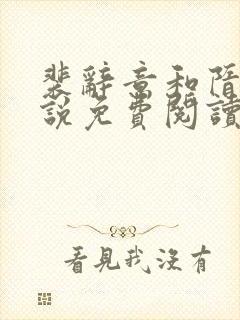 裴辭意和隋
說免費閱讀
看見我沒有